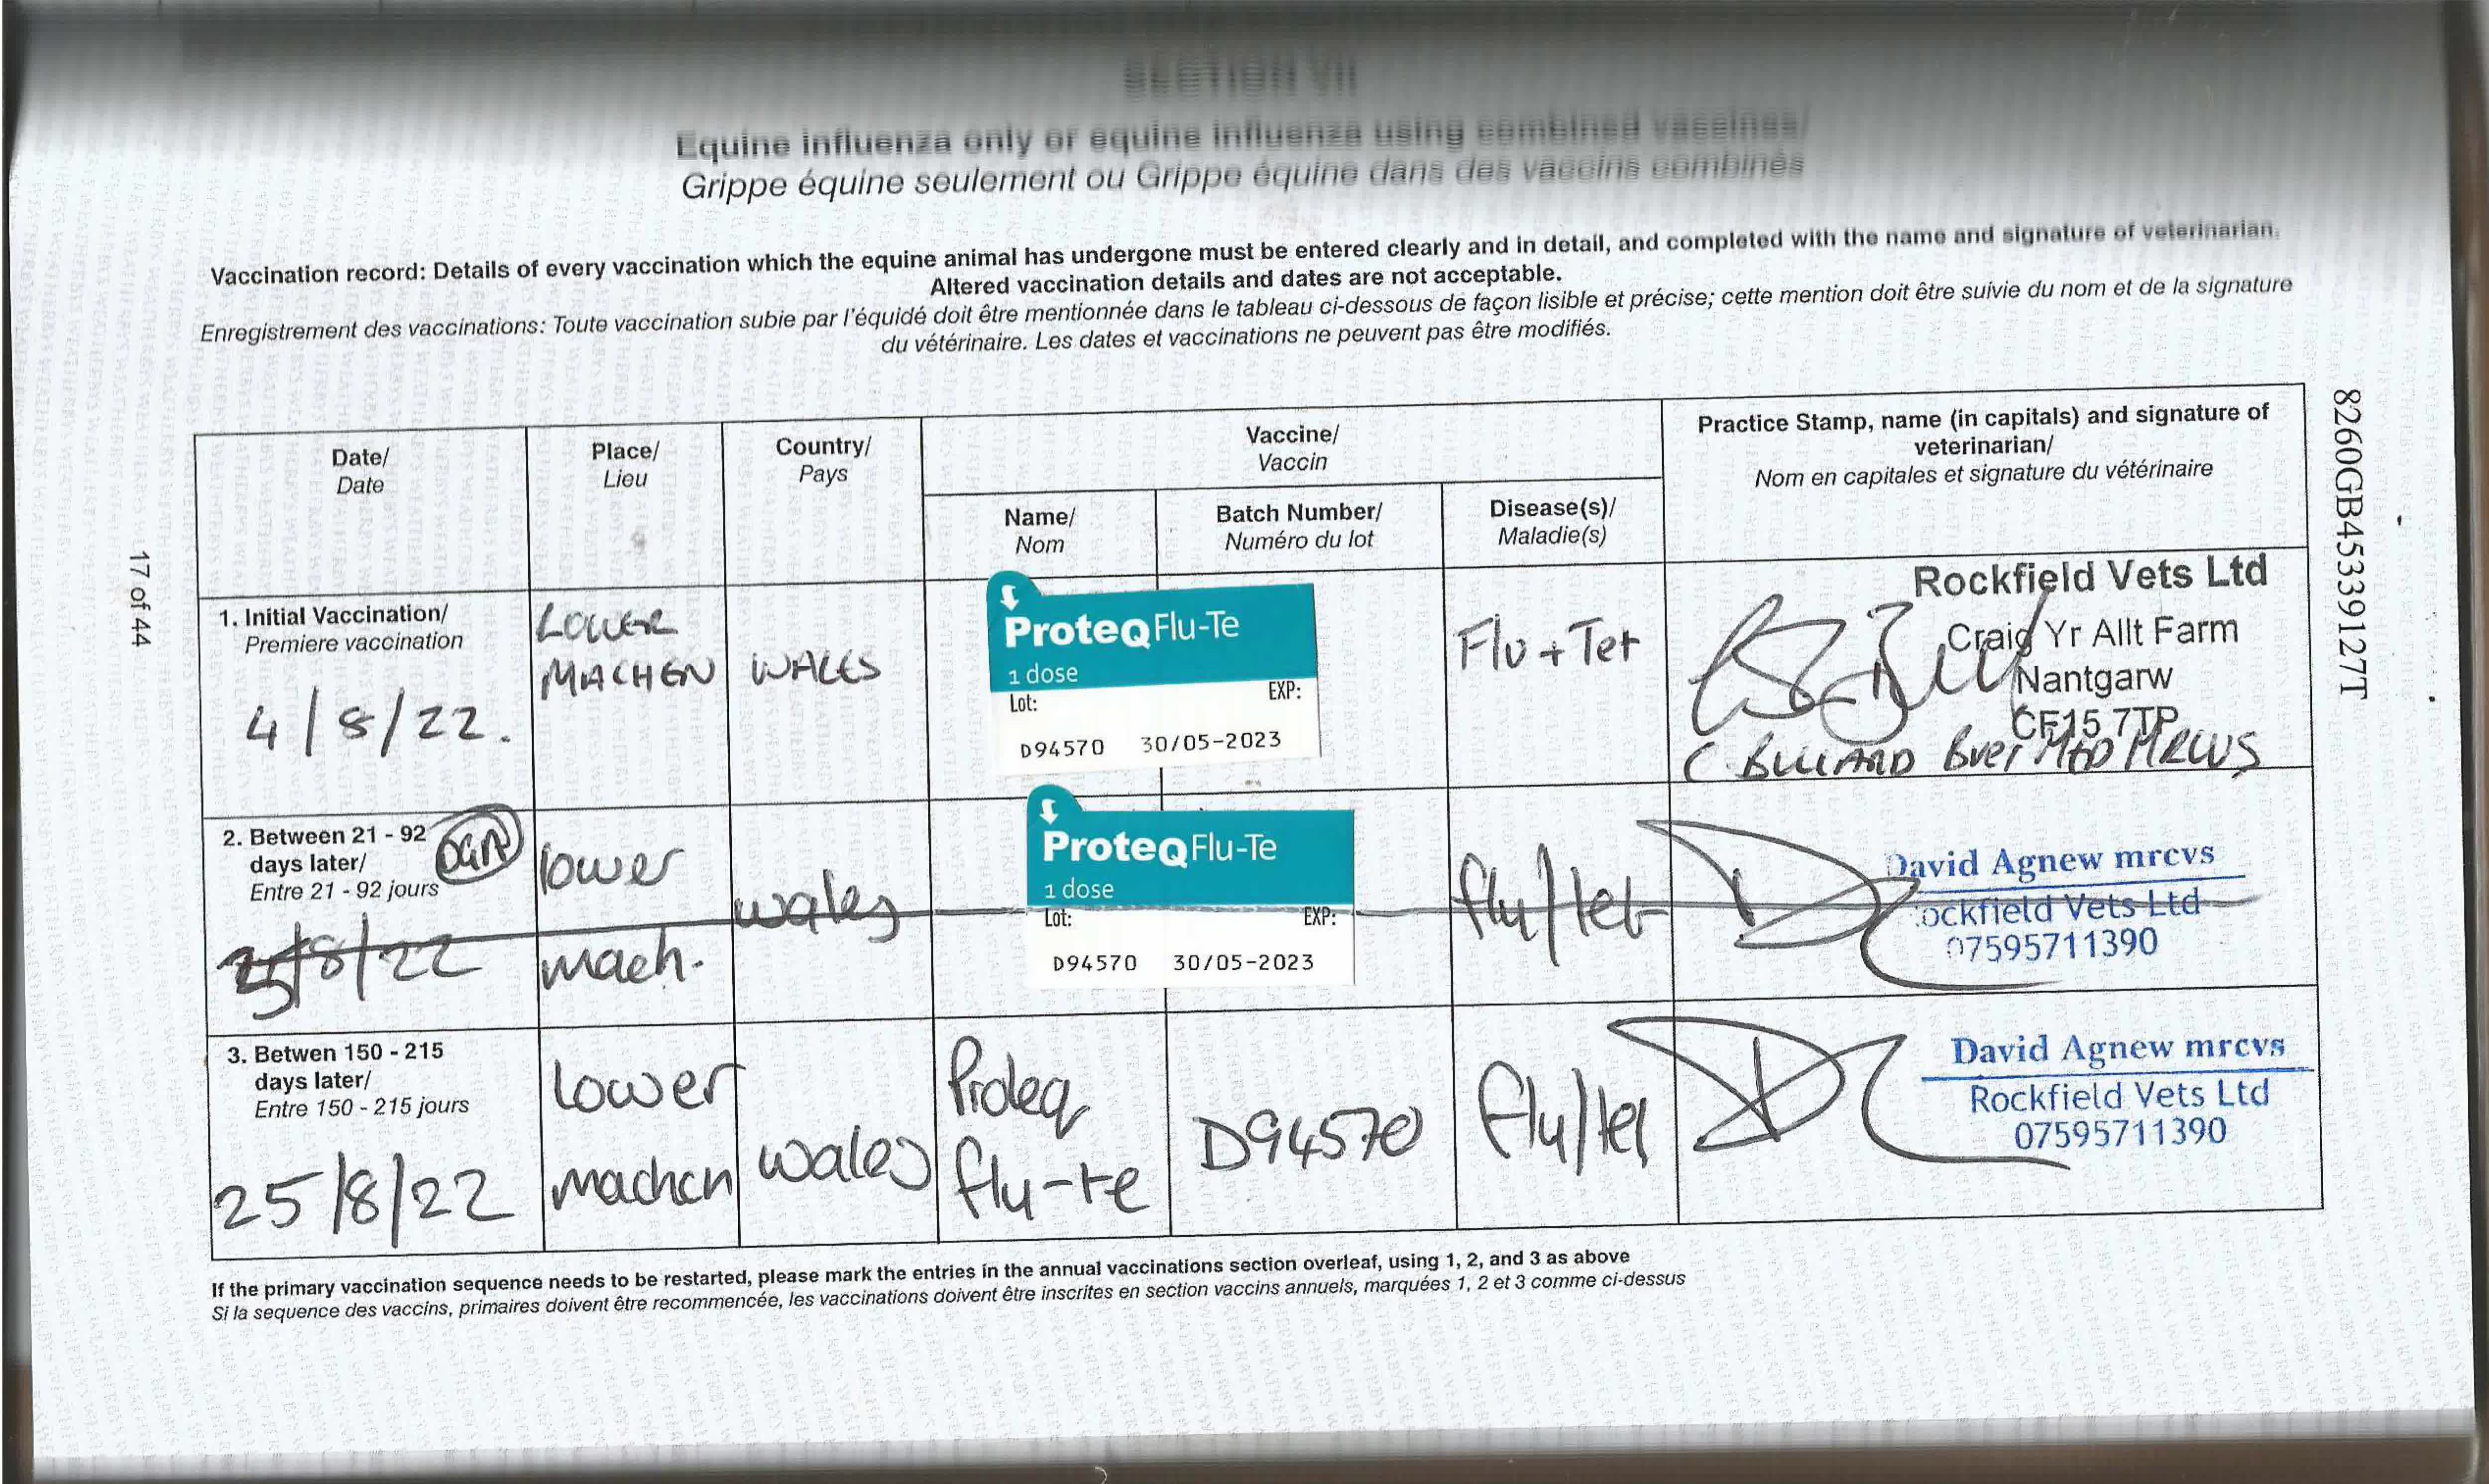 SECTION VII
Equine influenza only or equine influenza using combined vaccines/
Grippe équine seulement ou Grippe équine dans des vaccins combinés
Vaccination record: Details of every vaccination which the equine animal has undergone must be entered clearly and in detail, and completed with the name and signature of veterinarian.
Altered vaccination details and dates are not acceptable.
Enregistrement des vaccinations: Toute vaccination subie par l'équidé doit être mentionnée dans le tableau ci-dessous de façon lisible et précise; cette mention doit être suivie du nom et de la signature
du vétérinaire. Les dates et vaccinations ne peuvent pas être modifiés.
Date/
Date
Place/
Lieu
Country/
Pays
Vaccine/
Vaccin
Name/
Nom
Batch Number/
Numéro du lot
Disease(s)/
Maladie(s)
Practice Stamp, name (in capitals) and signature of
veterinarian/
Nom en capitales et signature du vétérinaire
1. Initial Vaccination/
Premiere vaccination
4/8/22.
LOWER
MACHEN
WALES
ProteqFlu-Te
1 dose
Lot: EXP:
D94570 30/05-2023
Flu + Tet
Rockfield Vets Ltd
Craig Yr Allt Farm
Nantgarw
CF15 7TP
C. BULLARD BVet MRCVS
2. Between 21 - 92
days later/
Entre 21 - 92 jours
/8/22
lower
mach.
wales
ProteqFlu-Te
1 dose
Lot: EXP:
D94570 30/05-2023
flu/tet
David Agnew mrcvs
ockfield Vets Ltd
07595711390
3. Betwen 150 - 215
days later/
Entre 150 - 215 jours
25/8/22
Lower
machen
wales
Proteq
flu-te
D94570
flu/tet
David Agnew mrcvs
Rockfield Vets Ltd
07595711390
If the primary vaccination sequence needs to be restarted, please mark the entries in the annual vaccinations section overleaf, using 1, 2, and 3 as above
Si la sequence des vaccins, primaires doivent être recommencée, les vaccinations doivent être inscrites en section vaccins annuels, marquées 1, 2 et 3 comme ci-dessus
17 of 44
8260GB45339127T